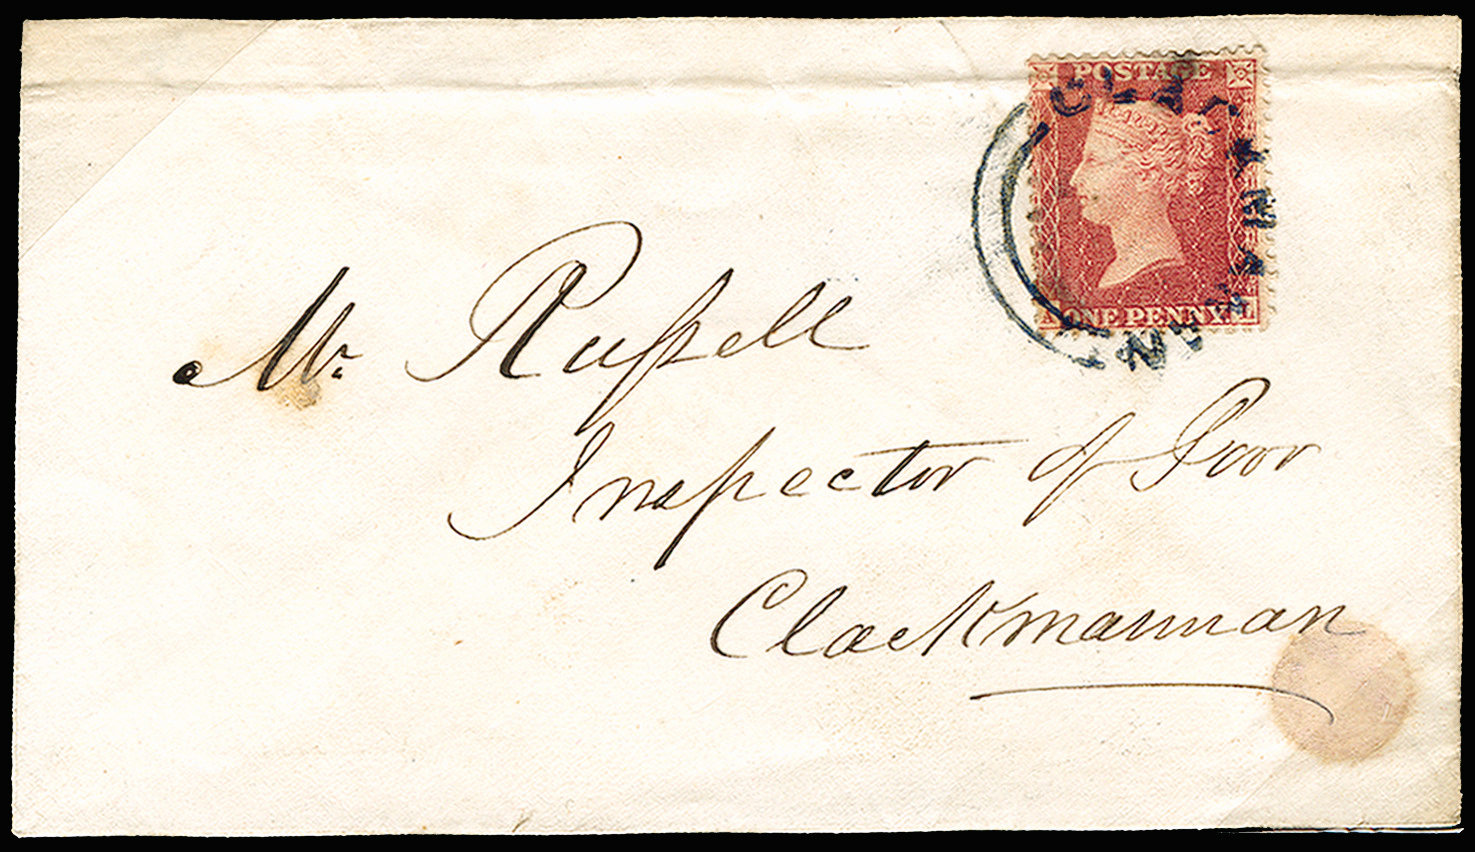 POSTAGE
ONE PENNY.
Mr. Russell
Inspector of Poor
Clackmannan